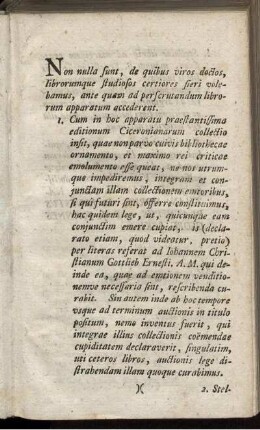 Non nulla sunt, de quibus viros doctos,
librorumque studiosos certiores fieri vole-
bamus, ante quam ad perscrutandum libro-
rum apparatum accederent.
1. Cum in hoc apparatu praestantissima
editionum Ciceronianarum collectio
insit, quae non parvo cuivis bibliothecae
ornamento, et maximo rei criticae
emolumento esse queat, ne nos utrum-
que impediremus, integram et con-
junctam illam collectionem emtoribus,
si qui futuri sint, offerre constituimus,
hac quidem lege, ut, quicunque eam
conjunctim emere cupiat, is (decla-
rato etiam, quod videatur, pretio)
per literas referat ad Iohannem Chri-
stianum Gottlieb Ernesti, A. M. qui de-
inde ea, quae ad emtionem venditio-
nemve necessaria sint, rescribenda cu-
rabit. Sin autem inde ab hoc tempore
vsque ad terminum auctionis in titulo
positum, nemo inventus fuerit, qui
integrae illius collectionis coëmendae
cupiditatem declaraverit, singulatim,
uti ceteros libros, auctionis lege di-
strahendam illam quoque curabimus.
)( 2. Stel-